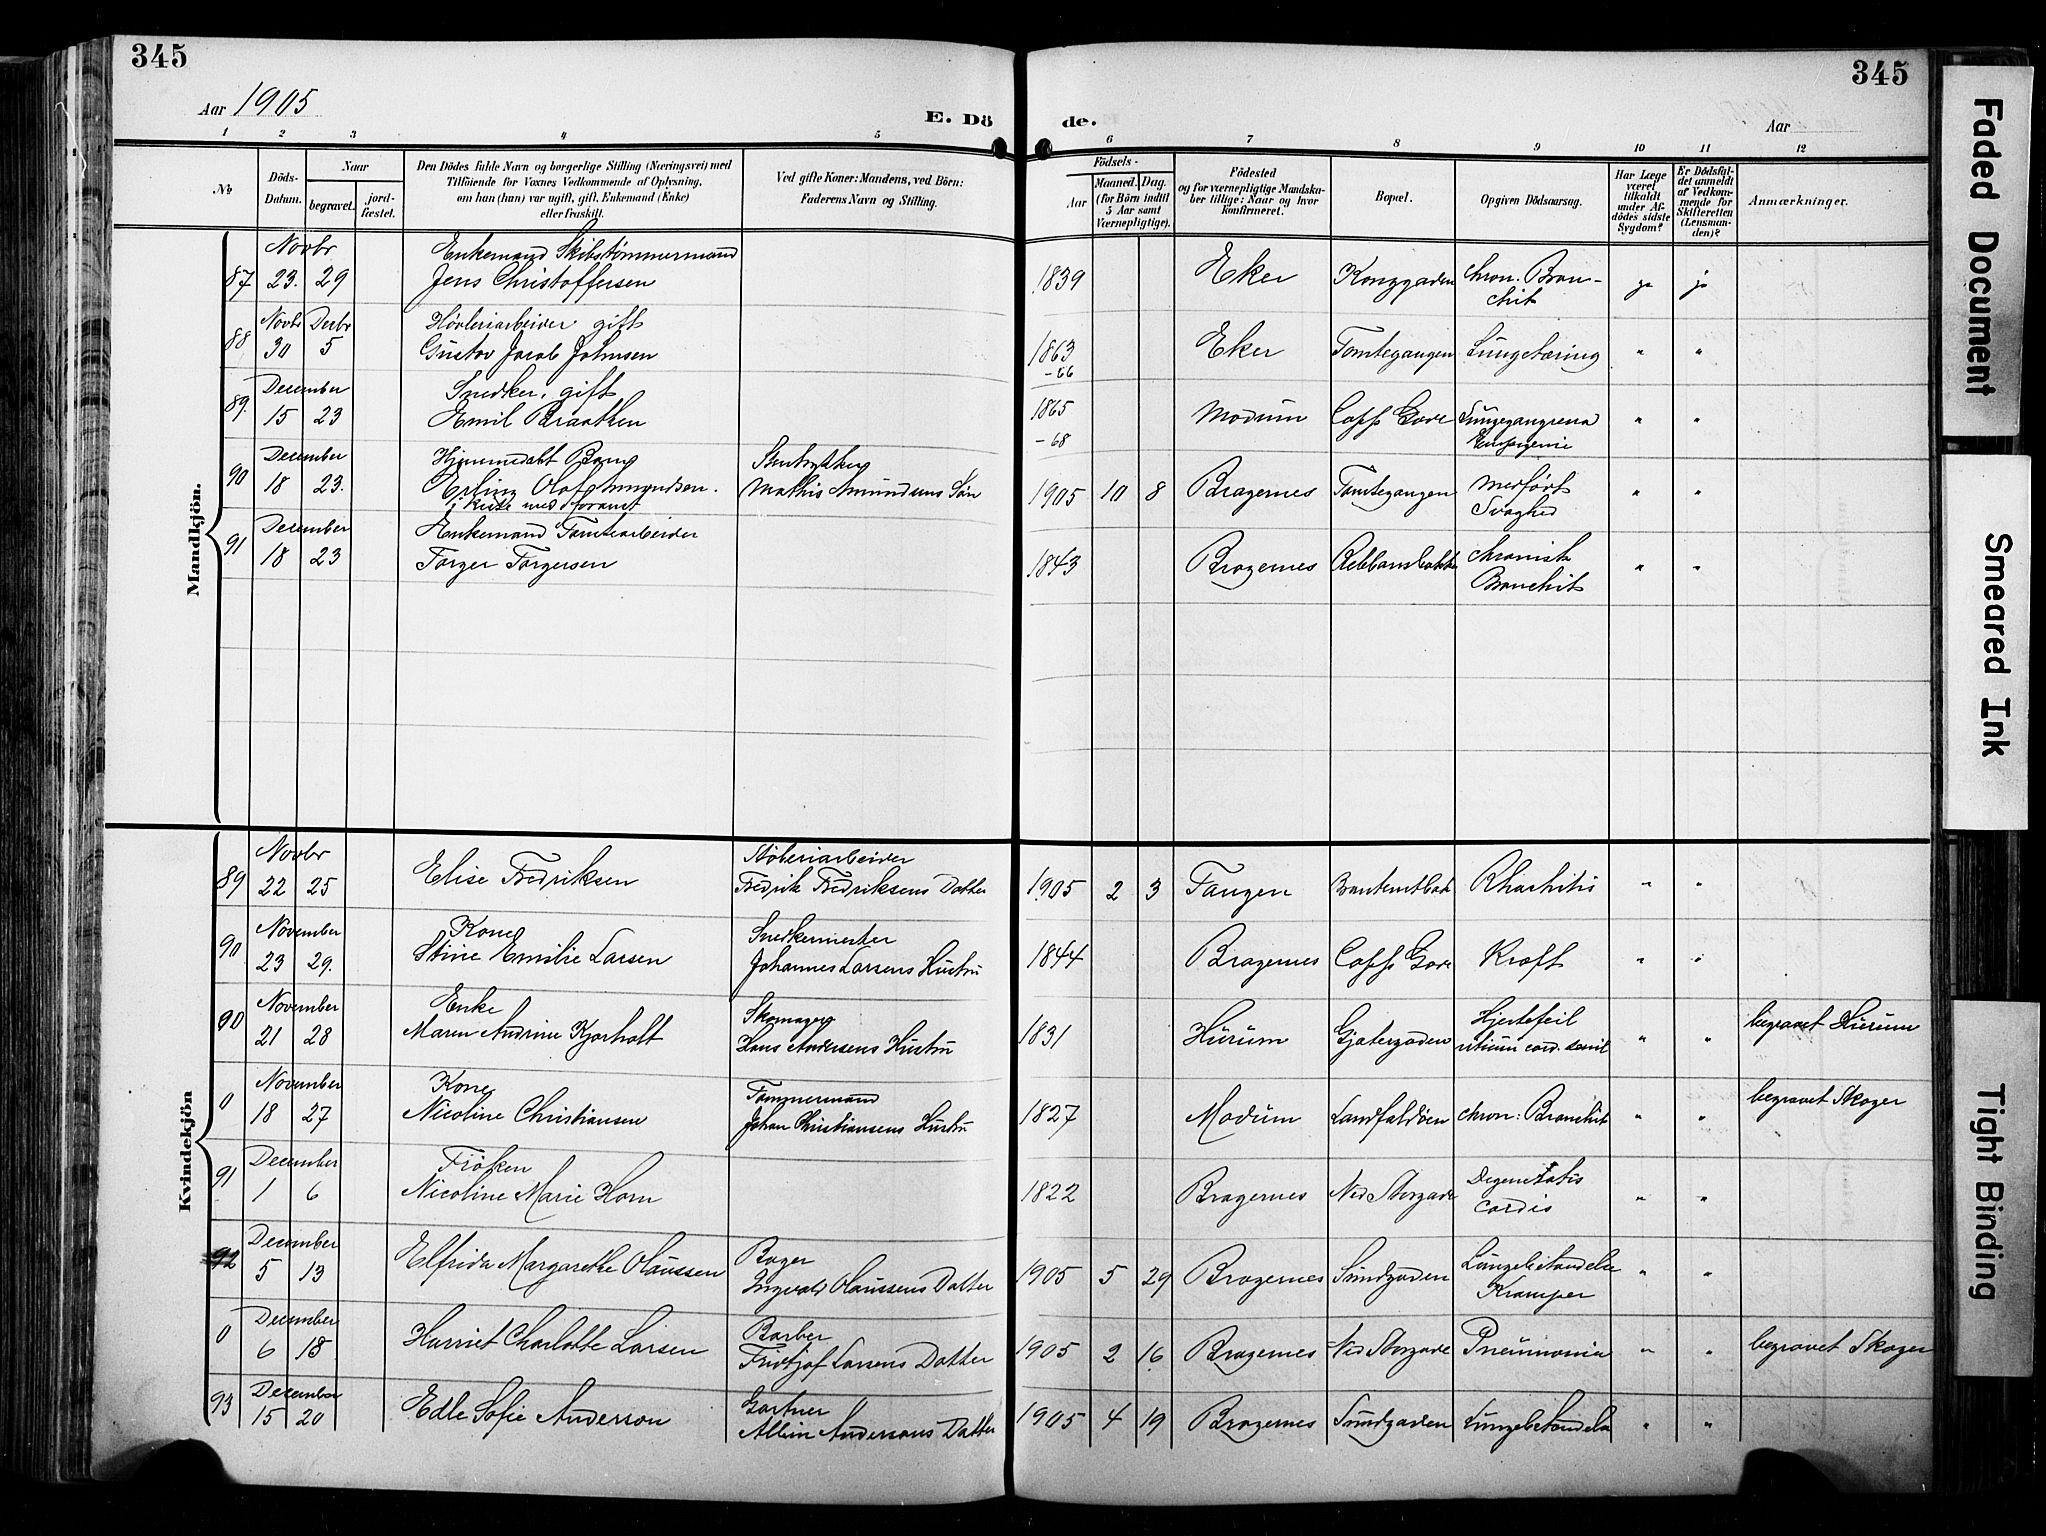 345
345
Aar 1905
E. Dö
de.
Aar
1 2 3 4 5 6 7 8 9 10 11 12
No
Döds-Datum.
Naar
begravet.
jord-fæstet.
Den Dödes fulde Navn og borgerlige Stilling (Næringsvei) med
Tilföiende for Voxnes Vedkommende af Oplysning,
om han (hun) var ugift, gift, Enkemand (Enke)
eller fraskilt.
Ved gifte Koner: Mandens, ved Börn:
Faderens Navn og Stilling.
Födsels-
Aar
Maaned. Dag.
(for Börn indtil
5 Aar samt
Værnepligtige).
Födested
og for værnepligtige Mandska-
ber tillige: Naar og hvor
konfirmeret.
Bopæl.
Opgiven Dödsaarsag.
Har Læge
været
tilkaldt
under Af-
dödes sidste
Sygdom?
Er Dödsfal-
det anmeldt
af Vedkom-
mende for
Skifteretten
(Lensman-
den)?
Anmærkninger.
Mandkjön.
Novbr Enkemand Skibstømmermand
87 23. 29 Jens Christoffersen 1839 Eker Konggaden chron. Bron-
chit ja ja
Novbr Decbr Høvleriarbeider gift
88 30 5 Gustav Jacob Johnsen 1863 Eker Tomtegangen Lungetæring " "
-66
December Snedker, gift
89. 15 23 Emil Braathen 1865 Modum Capps Gade Lungegangræna " "
-68 Empyemie
December Hjemmedøbt Barn Stenhugger
90 18 23. Erling Olaf Amundsen. Mathis Amundsens Søn 1905 10 8 Bragernes Tomtegangen Medfødt
Svaghed " "
i Kiste med foranst
December Enkemand Tomtearbeider
91 18 23 Torger Torgersen 1843 Bragernes chronisk
Bronchit " "
Kvindekjön
Novbr
89 22 25 Elise Fredriksen Fredrik Fredriksens Datter 1905 2 3 Tangen Rhachitis " "
November Kone Snedkermester
90 23 29. Stine Emilie Larsen Johannes Larsens Hustru 1844 Bragernes Capps Gade Kræft " "
November Enke Skomager
90 21 28 Maren Andrine Kjorholt Hans Andersens Hustru 1831 Hurum Gjætergaden Hjertefeil
vitium cord. senil " " begravet Hurum
November Kone Tømmermand
0 18 27 Nicoline Christiansen Johan Christiansens Hustru 1827 Modum Landfaldøen chron: Bronchit " " begravet Skoger
December Frøken
91 1 6 Nicoline Marie Horn 1822 Bragernes Ned Storgade Degeneratis
cordis " "
December Bager
92 5 13 Elfrida Margarethe Olaussen Ingvald Olaussens Datter 1905 5 29 Bragernes Sundgaden Lungebetændelse
Kramper " "
December Barber
0 6 18 Harriet Charlotte Larsen Fridtjof Larsens Datter 1905 2 16 Bragernes Ned Storgade Pneumonia " " begravet Skoger
December Gartner
93 15 20 Edle Sofie Anderson Albin Andersons Datter 1905 4 19 Bragernes Sundgaden Lungebetændelse " "
Faded Document
Smeared Ink
Tight Binding